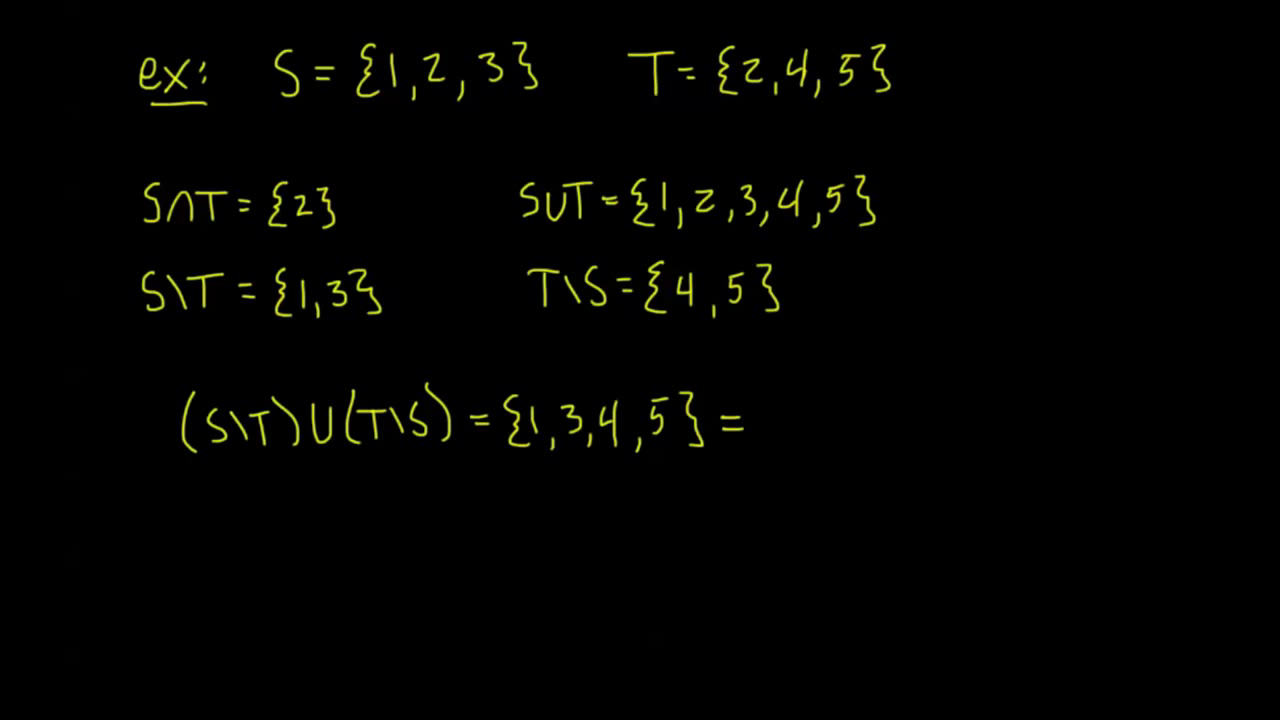 ex: S = {1, 2, 3} T = {2, 4, 5}
S∩T = {2} S∪T = {1, 2, 3, 4, 5}
S\T = {1, 3} T\S = {4, 5}
(S\T)∪(T\S) = {1, 3, 4, 5} =